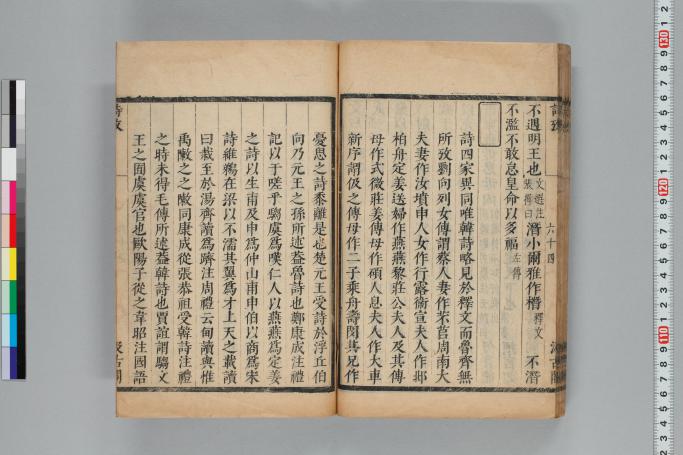 不遇明王也文選注張揖曰潛小爾雅作橬釋文 不潛
不濫不敢怠皇命以多福左傳
詩四家異同唯韓詩略見於釋文而魯齊無
所攷劉向列女傳謂蔡人妻作芣苢周南大
夫妻作汝墳申人女作行露衞宣夫人作邶
柏舟定姜送婦作燕燕黎莊公夫人及其傅
母作式微莊姜傅母作碩人息夫人作大車
新序謂伋之傅母作二子乘舟壽閔其兄作
憂思之詩黍離是也楚元王受詩於浮丘伯
向乃元王之孫所述葢魯詩也鄭康成注禮
記以于嗟乎騶虞爲嘆仁人以燕燕爲定姜
之詩以生甫及申爲仲山甫申伯以商爲宋
詩維鵜在梁以不濡其翼爲才上天之載讀
曰栽至於湯齊讀爲躋注周禮云甸讀與惟
禹敶之之敶同康成從張恭祖受韓詩注禮
之時未得毛傳所述葢韓詩也賈誼謂騶文
王之囿虞虞官也歐陽子從之韋昭注國語
詩攷
六十四
汲古閣